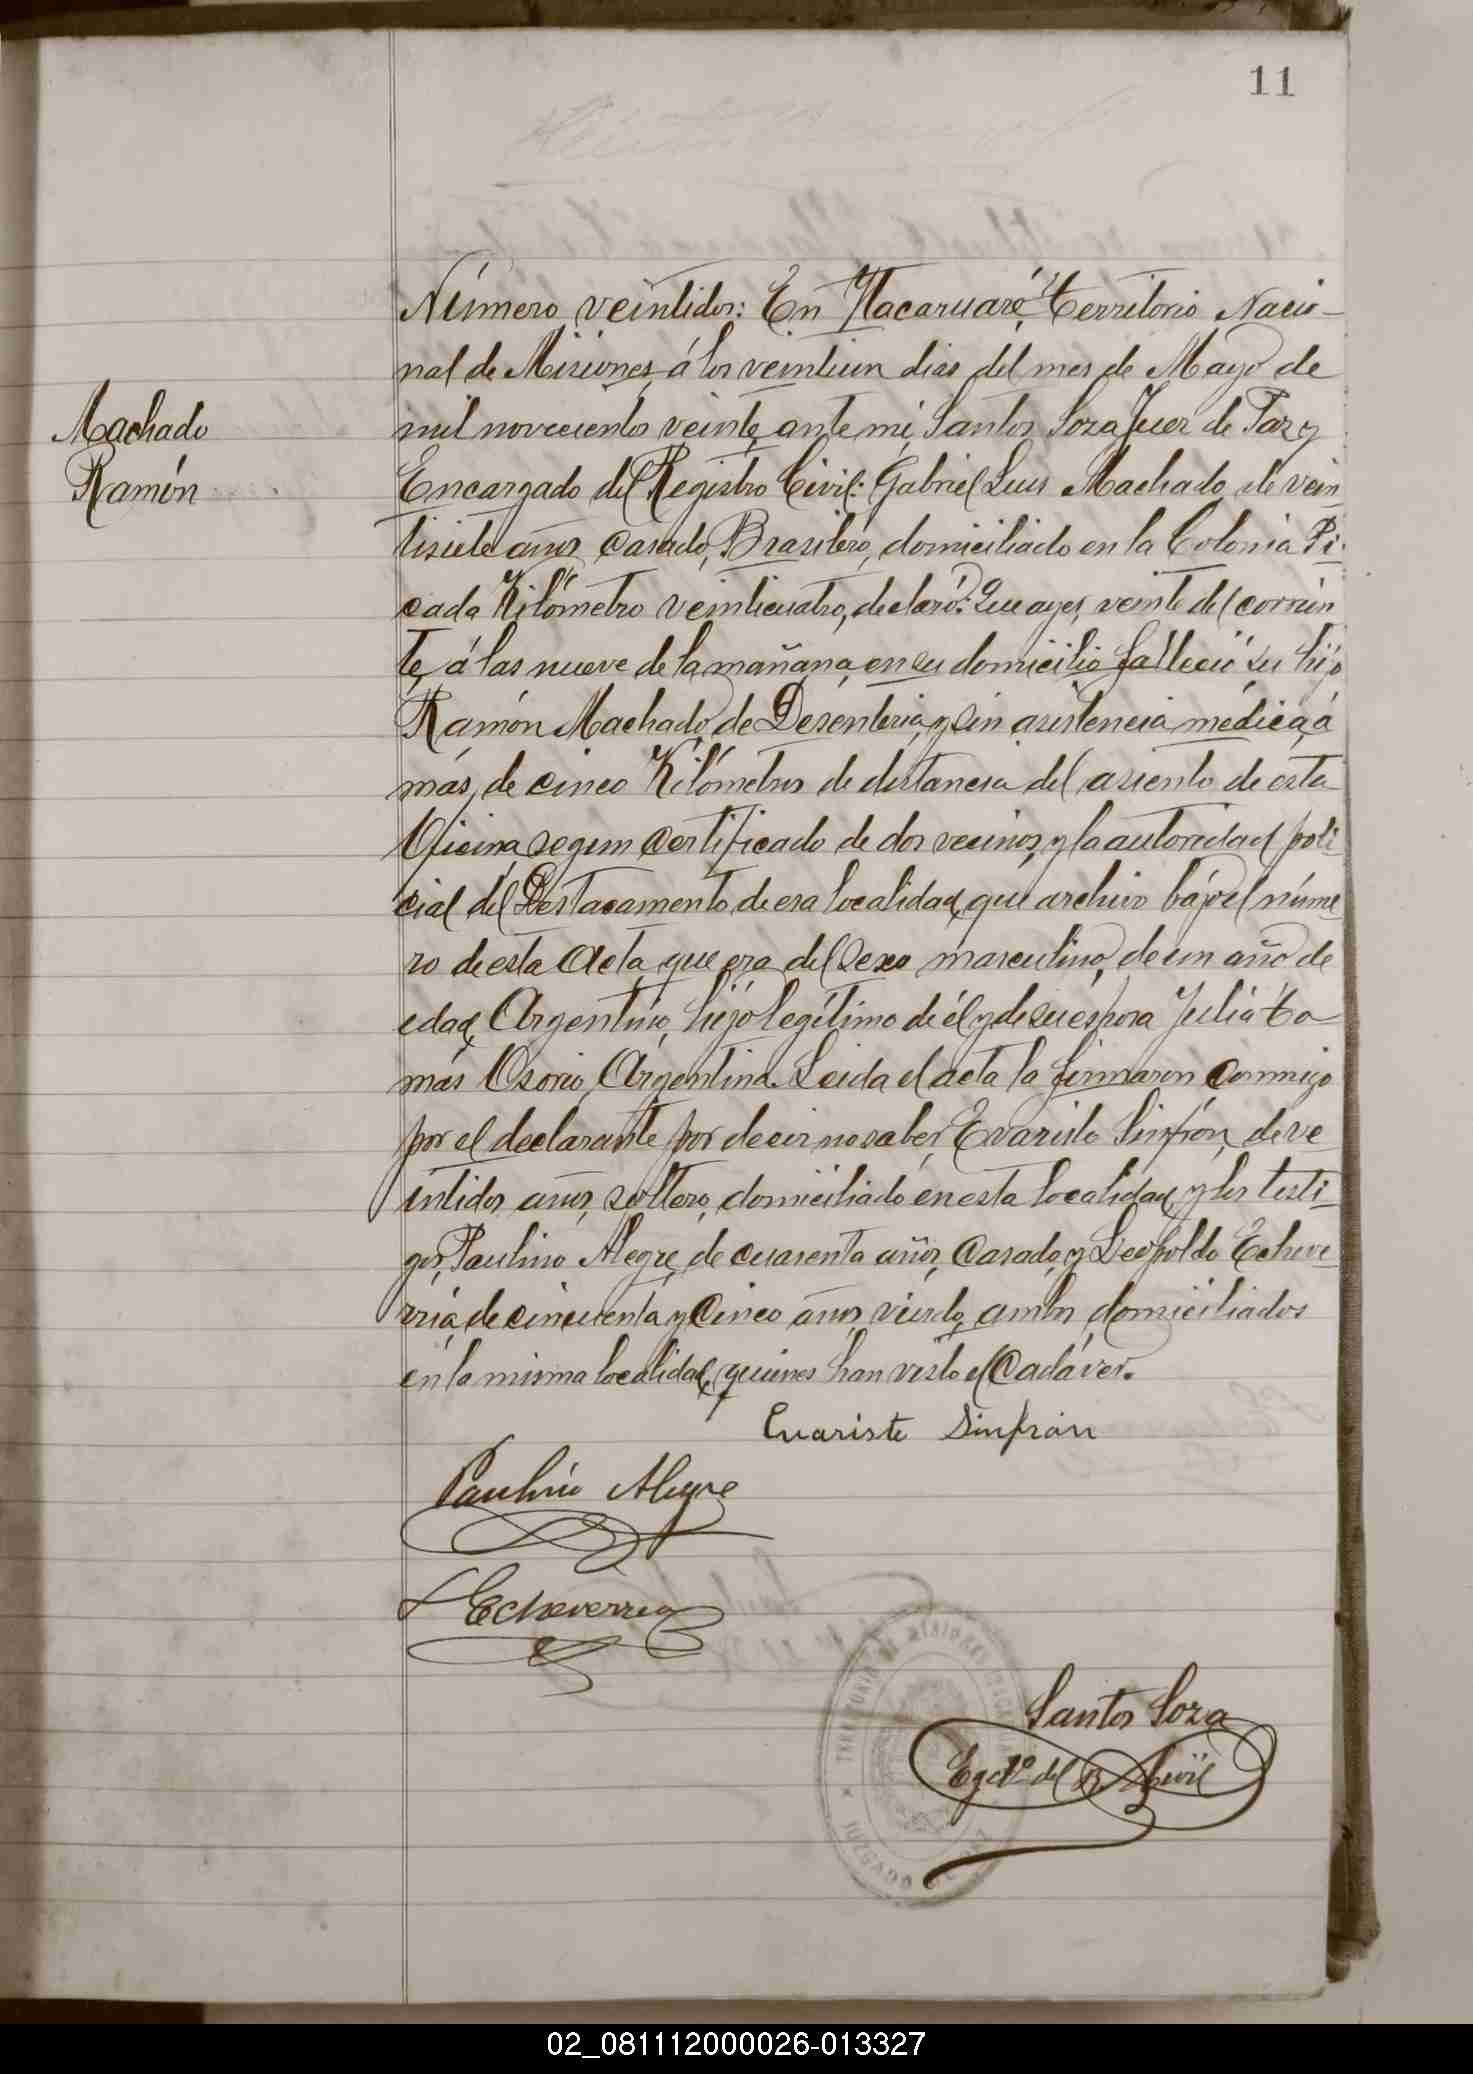 11
Machado
Ramón
Número veintidos: En Ytacaruaré, Territorio Nacio-
nal de Misiones, á los veintiun dias del mes de Mayo de
mil novecientos veinte, ante mi, Santos Soza Juez de Paz y
Encargado del Registro Civil: Gabriel Luis Machado, de vein
tisiete años, Casado, Brasilero, domiciliado en la Colonia Pi-
cada Kilómetro veinticuatro, declaró: Que ayer, veinte del corrien
te, á las nueve de la mañana, en su domicilio falleció su hijo
Ramón Machado, de Desenteria, y sin asistencia médica, á
más de cinco Kilómetros de distancia del asiento de esta
Oficina, segun Certificado de dos vecinos, y la autoridad poli-
cial del Destacamento de esa localidad, que archivo bájo el núme
ro de esta Acta, que era del Sexo masculino, de un año de
edad, Argentino, hijo legítimo de él y de su esposa Juliá To
más Osorio, Argentina. Leida el acta la firmaron Conmigo
por el declarante por decir no saber, Evaristo Sinfrón, de ve
intidos años, soltero, domiciliado en esta localidad, y los testi-
gos, Paulino Alegre, de cuarenta años, Casado, y Leopoldo Echeve
rriá, de cincuenta y Cinco años, viudo, ambos domiciliados
en la misma localidad, quienes han visto el Cadáver.
Evaristo Sinfrón
Paulino Alegre
L Echeverria
Santos Soza
Egdo. del R. Civil
TERRITORIO DE MISIONES
JUZGADO DE PAZ
02_081112000026-013327